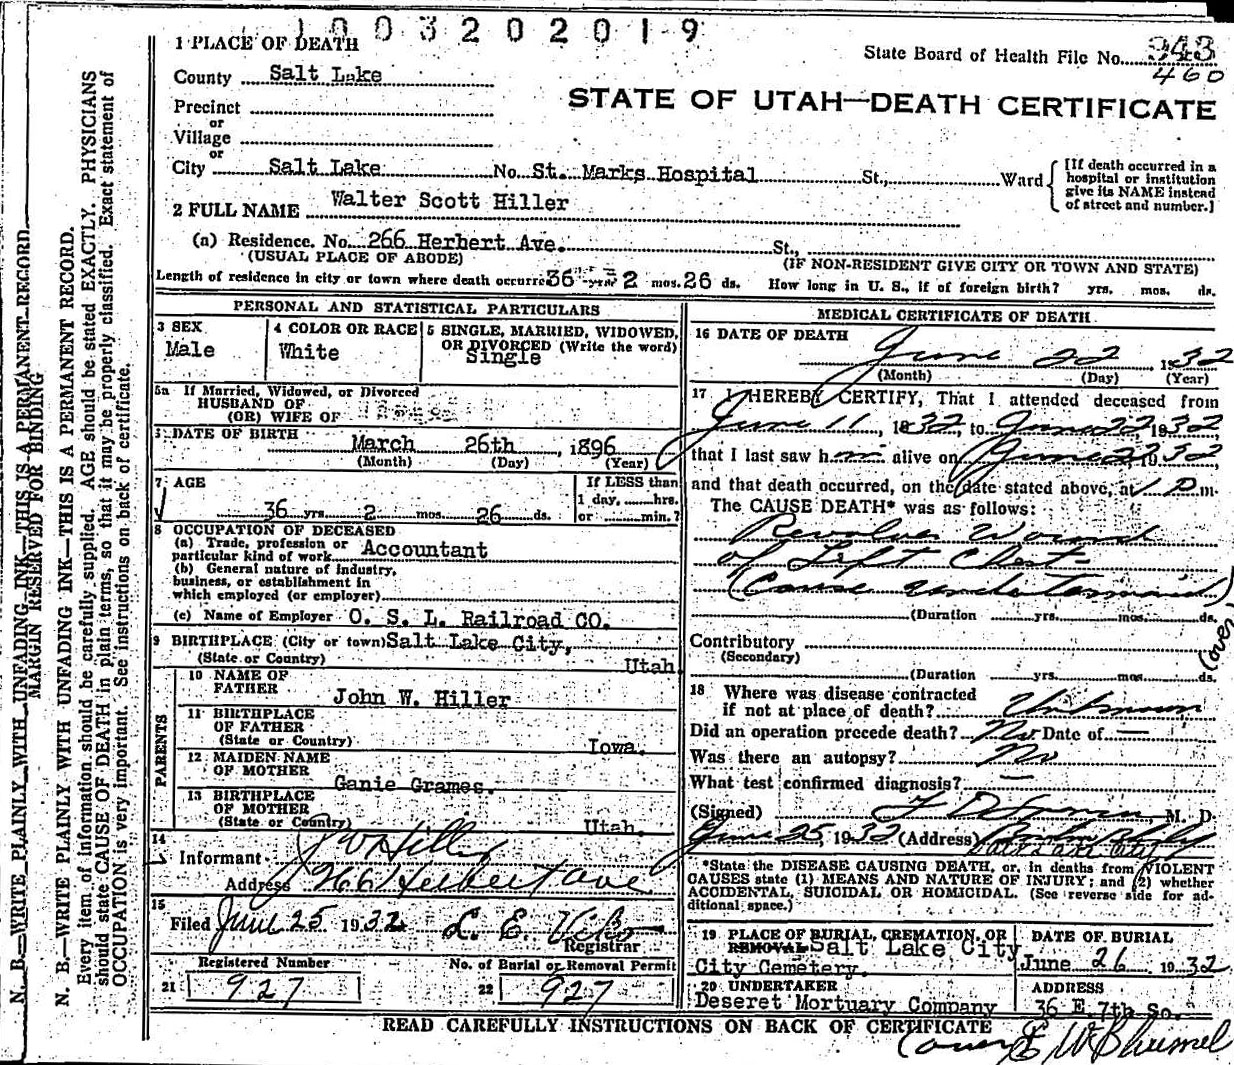 1003202019
State Board of Health File No. 943
460
STATE OF UTAH—DEATH CERTIFICATE
1 PLACE OF DEATH
County Salt Lake
Precinct
or
Village
or
City Salt Lake No. St. Marks Hospital St., Ward
[If death occurred in a hospital or institution give its NAME instead of street and number.]
2 FULL NAME Walter Scott Hiller
(a) Residence. No. 266 Herbert Ave. St.,
(USUAL PLACE OF ABODE) (IF NON-RESIDENT GIVE CITY OR TOWN AND STATE)
Length of residence in city or town where death occurred 36 yrs. 2 mos. 26 ds. How long in U. S., if of foreign birth? yrs. mos. ds.
PERSONAL AND STATISTICAL PARTICULARS
3 SEX
Male
4 COLOR OR RACE
White
5 SINGLE, MARRIED, WIDOWED,
OR DIVORCED (Write the word)
Single
5a If Married, Widowed, or Divorced
HUSBAND OF
(OR) WIFE OF
DATE OF BIRTH March 26th, 1896
(Month) (Day) (Year)
7 AGE
36 yrs. 2 mos. 26 ds.
If LESS than
1 day, hrs.
or min.?
8 OCCUPATION OF DECEASED
(a) Trade, profession or
particular kind of work Accountant
(b) General nature of industry,
business, or establishment in
which employed (or employer)
(c) Name of Employer O. S. L. Railroad CO.
9 BIRTHPLACE (City or town) Salt Lake City,
(State or Country) Utah
PARENTS
10 NAME OF
FATHER John W. Hiller
11 BIRTHPLACE
OF FATHER
(State or Country) Iowa.
12 MAIDEN NAME
OF MOTHER Ganie Grames.
13 BIRTHPLACE
OF MOTHER
(State or Country) Utah.
14
Informant J W Hiller
Address 266 Herbert Ave
15
Filed June 25 1932 L. E.
Registrar
Registered Number
21 927
No. of Burial or Removal Permit
22 927
MEDICAL CERTIFICATE OF DEATH
16 DATE OF DEATH
June 22, 1932
(Month) (Day) (Year)
17 I HEREBY CERTIFY, That I attended deceased from
June 11, 1932, to June 22, 1932
that I last saw him alive on June 22, 1932,
and that death occurred, on the date stated above, at 1 P.m.
The CAUSE DEATH* was as follows:
Revolver Wound
of Left Chest
(Cause undetermined)
(over)
(Duration yrs. mos. ds.
Contributory
(Secondary)
(Duration yrs. mos. ds.
18 Where was disease contracted
if not at place of death? Unknown
Did an operation precede death? No Date of —
Was there an autopsy? No
What test confirmed diagnosis? —
(Signed) M. D.
June 25, 1932 (Address)
Salt Lake City
*State the DISEASE CAUSING DEATH, or, in deaths from VIOLENT
CAUSES state (1) MEANS AND NATURE OF INJURY; and (2) whether
ACCIDENTAL, SUICIDAL OR HOMICIDAL. (See reverse side for ad-
ditional space.)
19 PLACE OF BURIAL, CREMATION, OR
REMOVAL Salt Lake City
City Cemetery.
DATE OF BURIAL
June 26 1932
20 UNDERTAKER
Deseret Mortuary Company
ADDRESS
36 E. 7th So.
READ CAREFULLY INSTRUCTIONS ON BACK OF CERTIFICATE
(over)
N. B.—WRITE PLAINLY WITH UNFADING INK—THIS IS A PERMANENT RECORD.
MARGIN RESERVED FOR BINDING
N. B.—WRITE PLAINLY WITH UNFADING INK—THIS IS A PERMANENT RECORD.
Every item of information should be carefully supplied. AGE should be stated EXACTLY. PHYSICIANS
should state CAUSE OF DEATH in plain terms, so that it may be properly classified. Exact statement of
OCCUPATION is very important. See instructions on back of certificate.